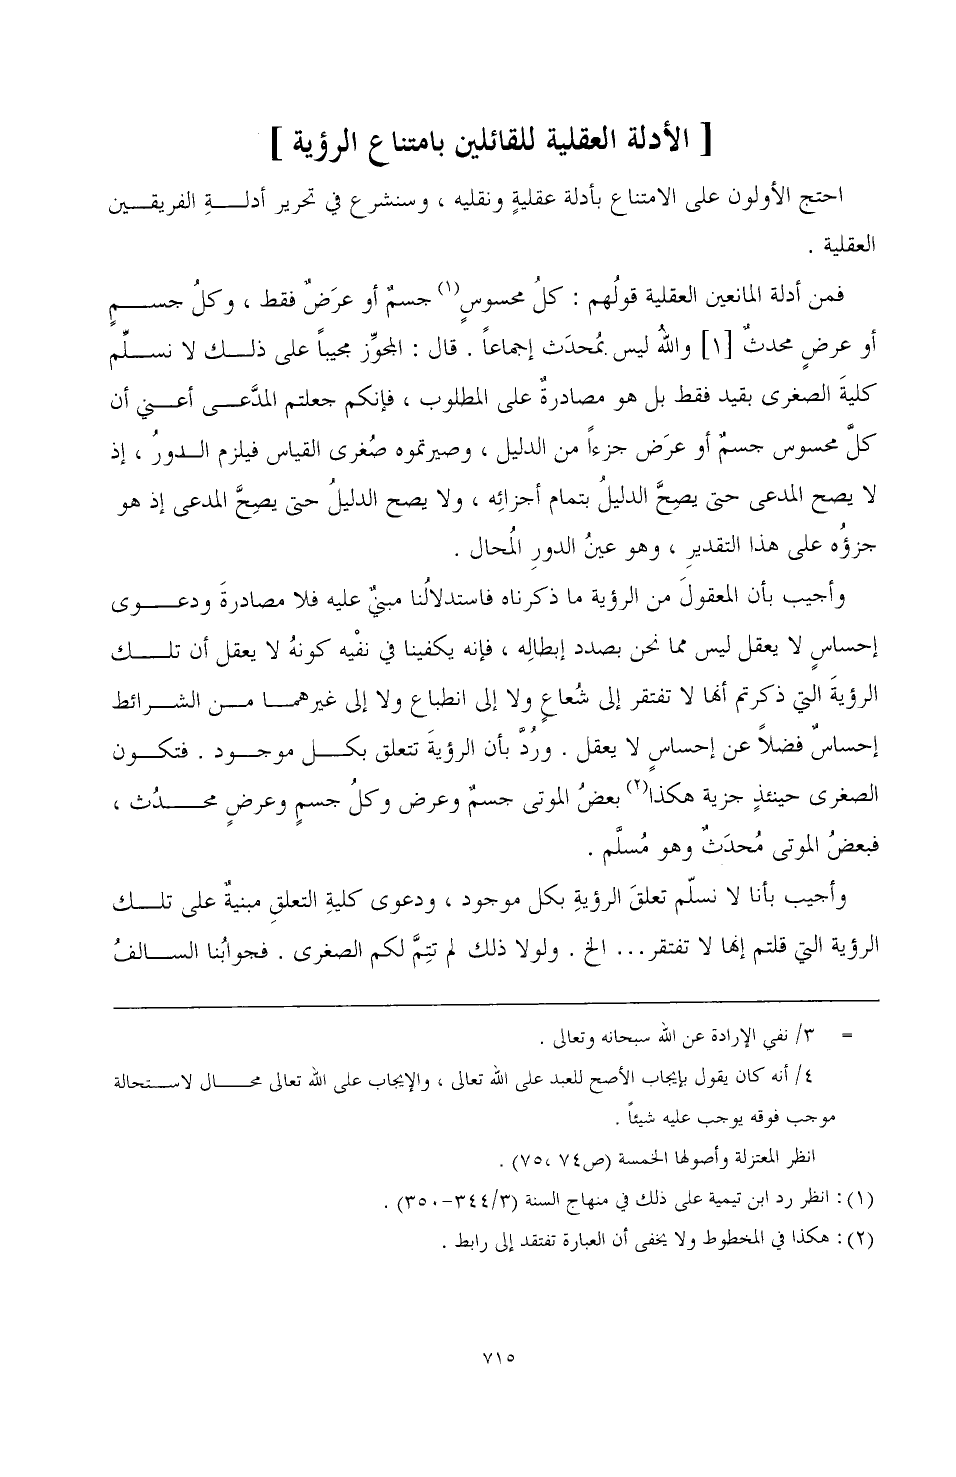 [ الأدلة العقلية للقائلين بامتناع الرؤية ]
احتج الأولون على الامتناع بأدلة عقليةٍ ونقليه ، وسنشرع في تحرير أدلـــةِ الفريقـــين
العقلية .
فمن أدلة المانعين العقلية قولُهم : كلُ محسوسٍ(١) جسمٌ أو عرَضٌ فقط ، وكلُ جســـمٍ
أو عرضٍ محدثٌ [١] واللهُ ليس بمُحدَث إجماعاً . قال : المجوِّز مجيباً على ذلـــك لا نســـلِّم
كليةَ الصغرى بقيد فقط بل هو مصادرةٌ على المطلوب ، فإنكم جعلتم المدَّعـــى أعـــني أن
كلَّ محسوس جسمٌ أو عرَض جزءاً من الدليل ، وصيرتموه صُغرى القياس فيلزم الـــدورُ ، إذ
لا يصح المدعى حتى يصِحَّ الدليلُ بتمام أجزائِه ، ولا يصح الدليلُ حتى يصِحَّ المدعى إذ هو
جزؤُه على هذا التقديرِ ، وهو عينُ الدورِ المُحال .
وأجيب بأن المعقولَ من الرؤية ما ذكرناه فاستدلالُنا مبنيٌ عليه فلا مصادرةَ ودعـــوى
إحساسٍ لا يعقل ليس مما نحن بصدد إبطالِه ، فإنه يكفينا في نفْيه كونهُ لا يعقل أن تلـــك
الرؤيةَ التي ذكرتم أنها لا تفتقر إلى شُعاعٍ ولا إلى انطباع ولا إلى غيرهمـــا مـــن الشـــرائط
إحساسٌ فضلاً عن إحساسٍ لا يعقل . ورُدَّ بأن الرؤيةَ تتعلق بكـــل موجـــود . فتكـــون
الصغرى حينئذٍ جزية هكذا(٢) بعضُ الموتى جسمٌ وعرض وكلُ جسمٍ وعرضٍ محـــدُث ،
فبعضُ الموتى مُحدَثٌ وهو مُسلَّم .
وأجيب بأنا لا نسلّم تعلقَ الرؤيةِ بكل موجود ، ودعوى كليةِ التعلقِ مبنيةٌ على تلـــك
الرؤية التي قلتم إنها لا تفتقر... الخ . ولولا ذلك لم تتِمَّ لكم الصغرى . فجوابُنا الســـالفُ
= ٣/ نفي الإرادة عن الله سبحانه وتعالى .
٤/ أنه كان يقول بإيجاب الأصح للعبد على الله تعالى ، والإيجاب على الله تعالى محـــال لاســـتحالة
موجب فوقه يوجب عليه شيئاً .
انظر المعتزلة وأصولها الخمسة (ص٧٤ ،٧٥) .
(١): انظر رد ابن تيمية على ذلك في منهاج السنة (٣/٣٤٤-٣٥٠) .
(٢): هكذا في المخطوط ولا يخفى أن العبارة تفتقد إلى رابط .
٧١٥